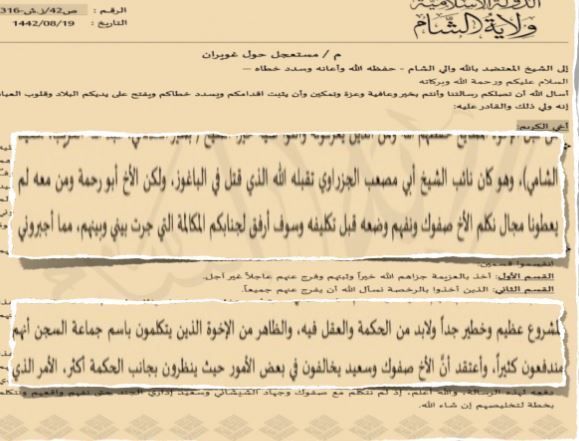 الدولة الإسلامية
ولاية الشام
الرقم : ص42/ز.ش-316
التاريخ : 1442/08/19
م / مستعجل حول غويران
إلى الشيخ المعتضد بالله والي الشام - حفظه الله وأعانه وسدد خطاه —
السلام عليكم ورحمة الله وبركاته
أسأل الله أن تصلكم رسالتنا وأنتم بخير وعافية وعزة وتمكين وأن يثبت اقدامكم ويسدد خطاكم ويفتح على يديكم البلاد وقلوب العباد
إنه ولي ذلك والقادر عليه:
أخي الكريم:
الشامي)، وهو كان نائب الشيخ أبي مصعب الجزراوي تقبله الله الذي قتل في الباغوز، ولكن الأخ أبو رحمة ومن معه لم
يعطونا مجال نكلم الأخ صفوك ونفهم وضعه قبل تكليفه وسوف أرفق لجنابكم المكالمة التي جرت بيني وبينهم، مما أجبروني
انقسموا قسمين:
القسم الأول: أخذ بالعزيمة جزاهم الله خيراً وثبتهم وفرج عنهم عاجلاً غير آجل.
القسم الثاني: الذين أخذوا بالرخصة نسأل الله أن يفرج عنهم جميعاً.
لمشروع عظيم وخطير جداً ولابد من الحكمة والعقل فيه، والظاهر من الإخوة الذين يتكلمون باسم جماعة السجن أنهم
مندفعون كثيراً، وأعتقد أنَّ الأخ صفوك وسعيد يخالفون في بعض الأمور حيث ينظرون بجانب الحكمة أكثر، الأمر الذي
دفعه لهذه الرسالة، والله أعلم، إذ لم نتكلم مع صفوك وجهاد الشيشاني وسعيد إداري
بخطة لتخليصهم إن شاء الله.